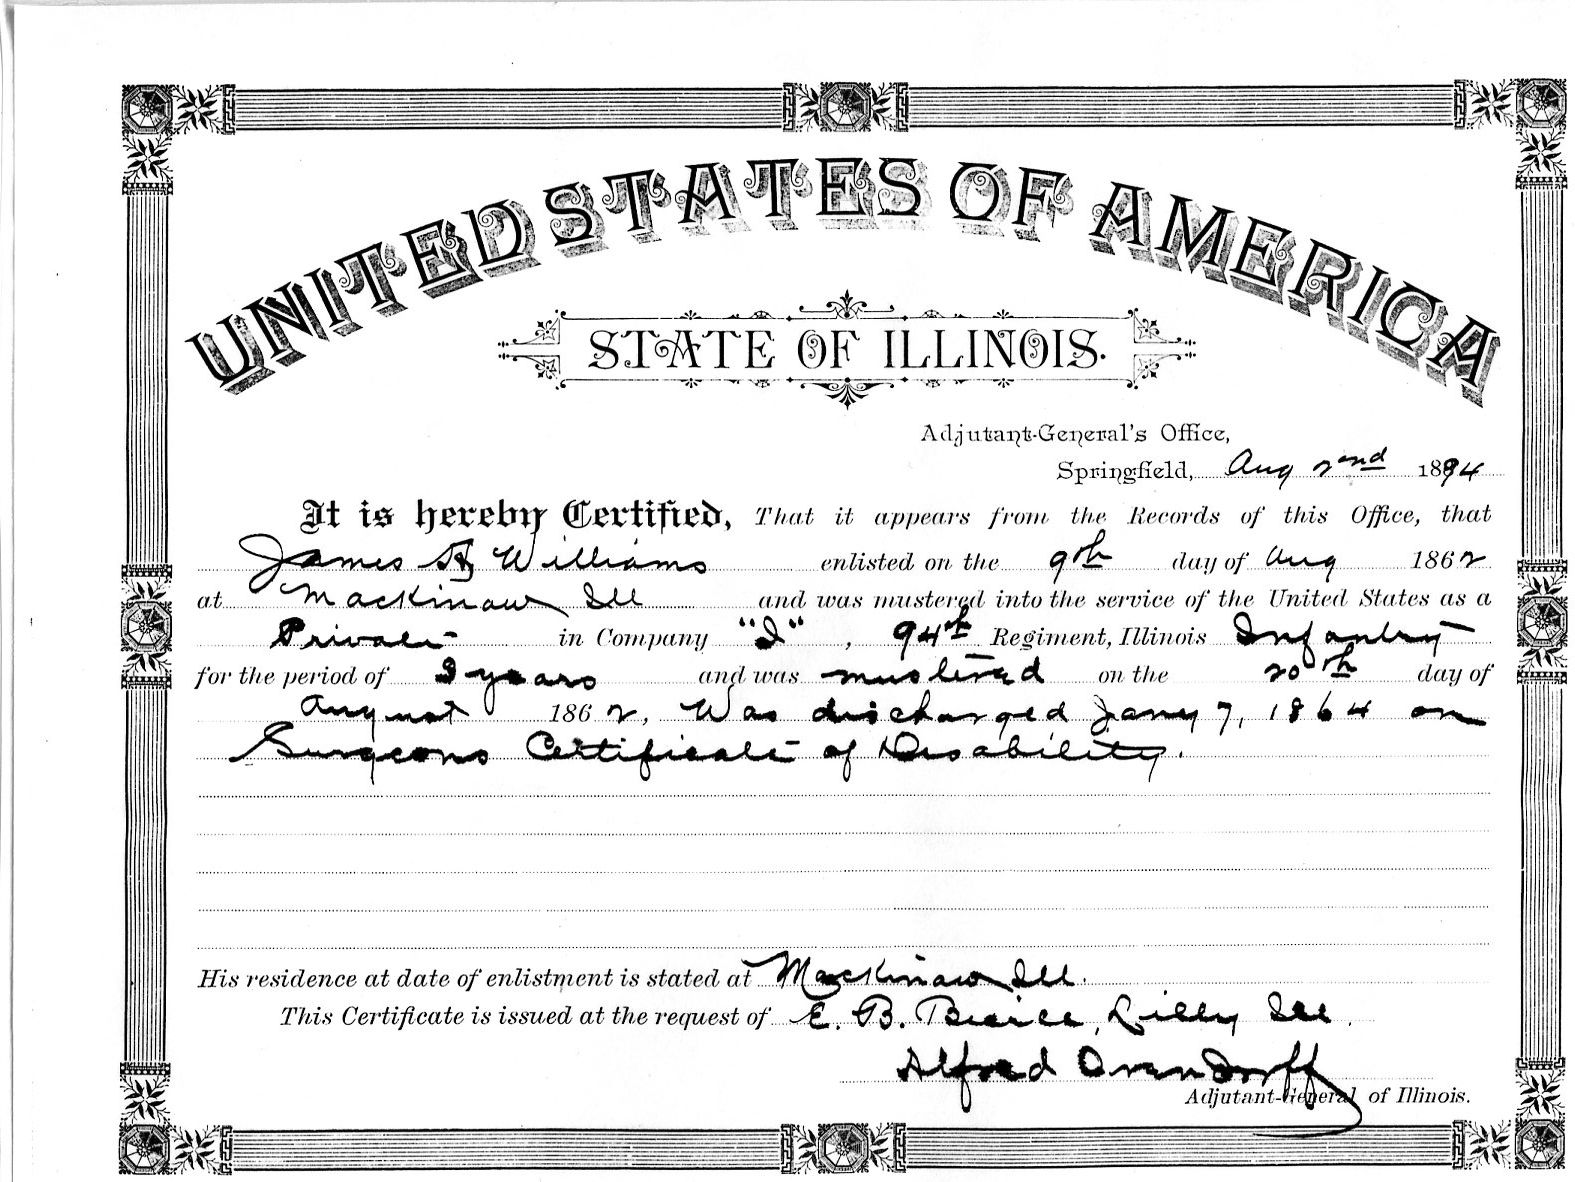 UNITED STATES OF AMERICA
STATE OF ILLINOIS.
Adjutant-General's Office,
Springfield, Aug 2nd 1894
It is hereby Certified, That it appears from the Records of this Office, that
James Williams enlisted on the 9th day of Aug 1862
at Mackinaw Ill and was mustered into the service of the United States as a
Private in Company "I", 94th Regiment, Illinois Infantry
for the period of 3 years and was mustered on the 20th day of
August 1862, Was discharged Jany 7, 1864 on
Surgeons Certificate of Disability.
His residence at date of enlistment is stated at Mackinaw Ill.
This Certificate is issued at the request of E. B. Lilly Ill.
Alfred Orendorff
Adjutant-General of Illinois.